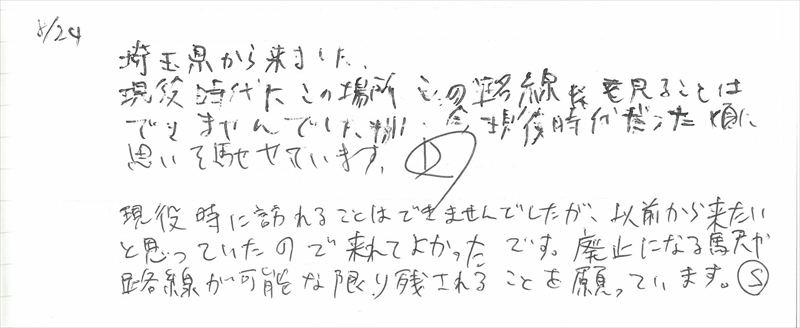 8/24
埼玉県から来ました。
現役時代にこの場所、この路線を見ることは
できませんでしたが、今現役時代だった頃に
思いを馳せています。D
現役時に訪れることはできませんでしたが、以前から来たい
と思っていたので来れてよかったです。廃止になる駅や
路線が可能な限り残されることを願っています。S